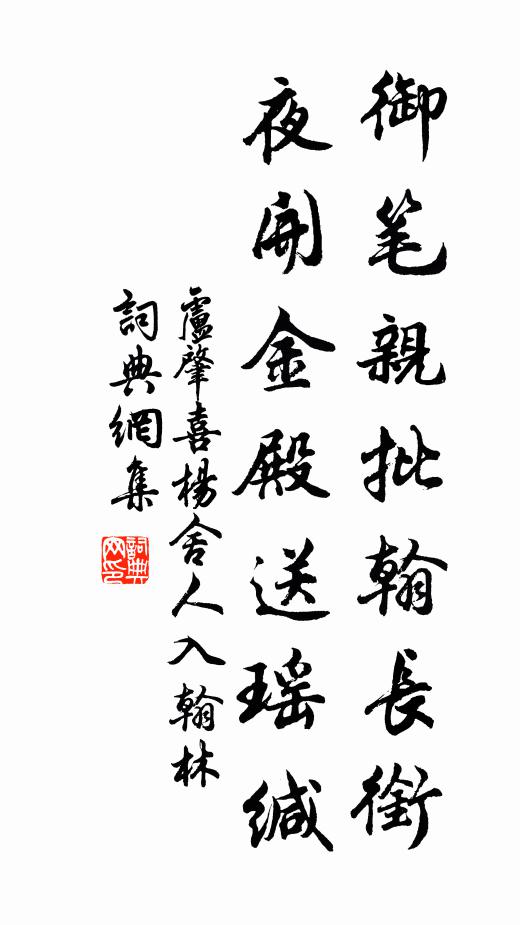 御笔親批翰長銜
夜開金殿送瑶緘
盧肇喜楊舍人入翰林
詞典網集
詞典网印